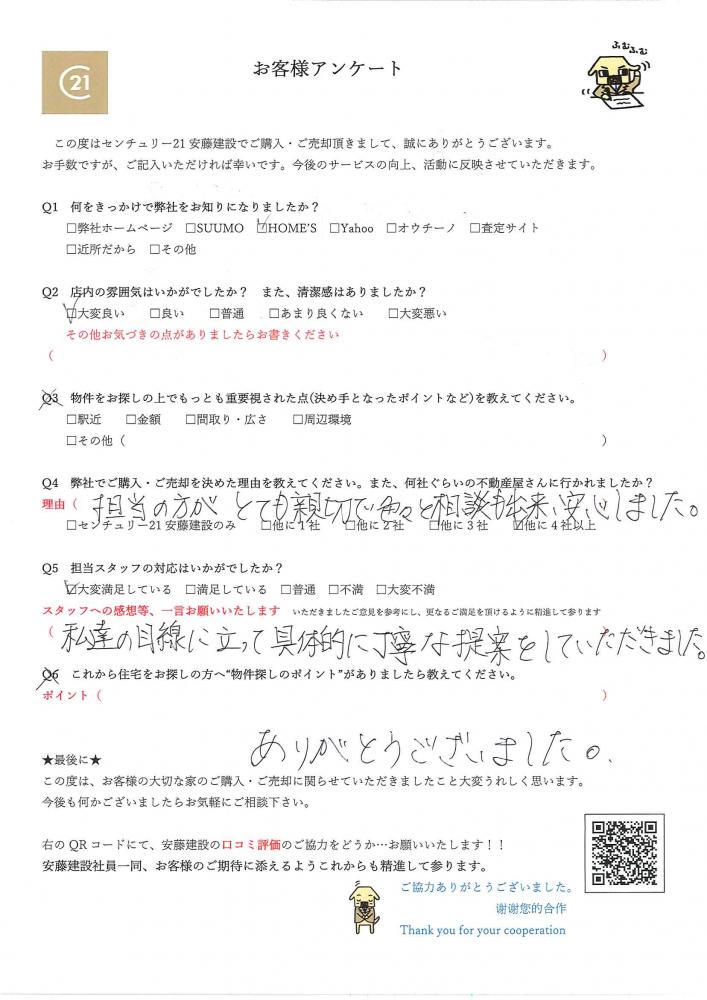 C21
お客様アンケート
ふむふむ
この度はセンチュリー21 安藤建設でご購入・ご売却頂きまして、誠にありがとうございます。
お手数ですが、ご記入いただければ幸いです。今後のサービスの向上、活動に反映させていただきます。
Q1 何をきっかけで弊社をお知りになりましたか？
□弊社ホームページ □SUUMO ☑HOME'S □Yahoo □オウチーノ □査定サイト
□近所だから □その他
Q2 店内の雰囲気はいかがでしたか？ また、清潔感はありましたか？
☑大変良い □良い □普通 □あまり良くない □大変悪い
その他お気づきの点がありましたらお書きください
（ ）
Q3 物件をお探しの上でもっとも重要視された点(決め手となったポイントなど)を教えてください。
□駅近 □金額 □間取り・広さ □周辺環境
□その他（ ）
Q4 弊社でご購入・ご売却を決めた理由を教えてください。また、何社ぐらいの不動産屋さんに行かれましたか？
理由（ 担当の方が とても親切で色々と相談も出来、安心しました。
□センチュリー21 安藤建設のみ □他に1社 □他に2社 □他に3社 ☑他に4社以上
Q5 担当スタッフの対応はいかがでしたか？
☑大変満足している □満足している □普通 □不満 □大変不満
スタッフへの感想等、一言お願いいたします いただきましたご意見を参考にし、更なるご満足を頂けるように精進して参ります
（ 私達の目線に立って具体的に丁寧な提案をしていただきました。
Q6 これから住宅をお探しの方へ“物件探しのポイント”がありましたら教えてください。
ポイント（ ）
ありがとうございました。
★最後に★
この度は、お客様の大切な家のご購入・ご売却に関らせていただきましたこと大変うれしく思います。
今後も何かございましたらお気軽にご相談下さい。
右のQRコードにて、安藤建設の口コミ評価のご協力をどうか…お願いいたします！！
安藤建設社員一同、お客様のご期待に添えるようこれからも精進して参ります。
ご協力ありがとうございました。
谢谢您的合作
Thank you for your cooperation